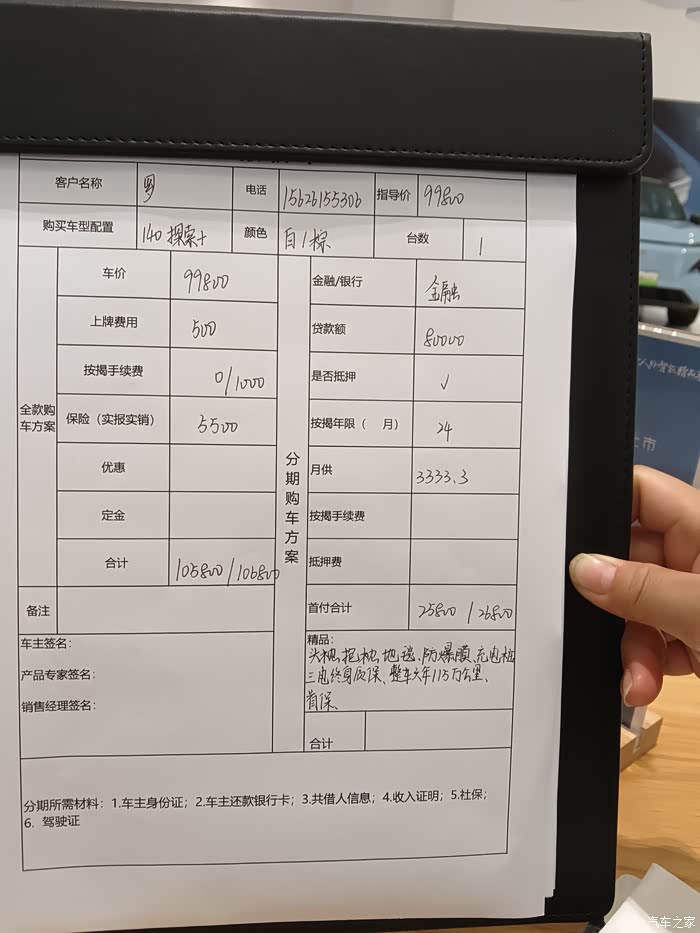 客户名称 罗 电话 15626155306 指导价 99800
购买车型配置 140 探索+ 颜色 白/棕 台数 1
全款购车方案
车价 99800
上牌费用 500
按揭手续费 0/1000
保险（实报实销） 5500
优惠
定金
合计 105800/106800
备注
车主签名：
产品专家签名：
销售经理签名：
分期购车方案
金融/银行 金融
贷款额 80000
是否抵押 √
按揭年限（ 月） 24
月供 3333.3
按揭手续费
抵押费
首付合计 25800/26800
精品：
头枕、抱枕、地毯、防爆膜、充电桩
三电终身质保、整车六年/15万公里、
首保、
合计
分期所需材料：1.车主身份证；2.车主还款银行卡；3.共借人信息；4.收入证明；5.社保；
6. 驾驶证
上市
汽车之家